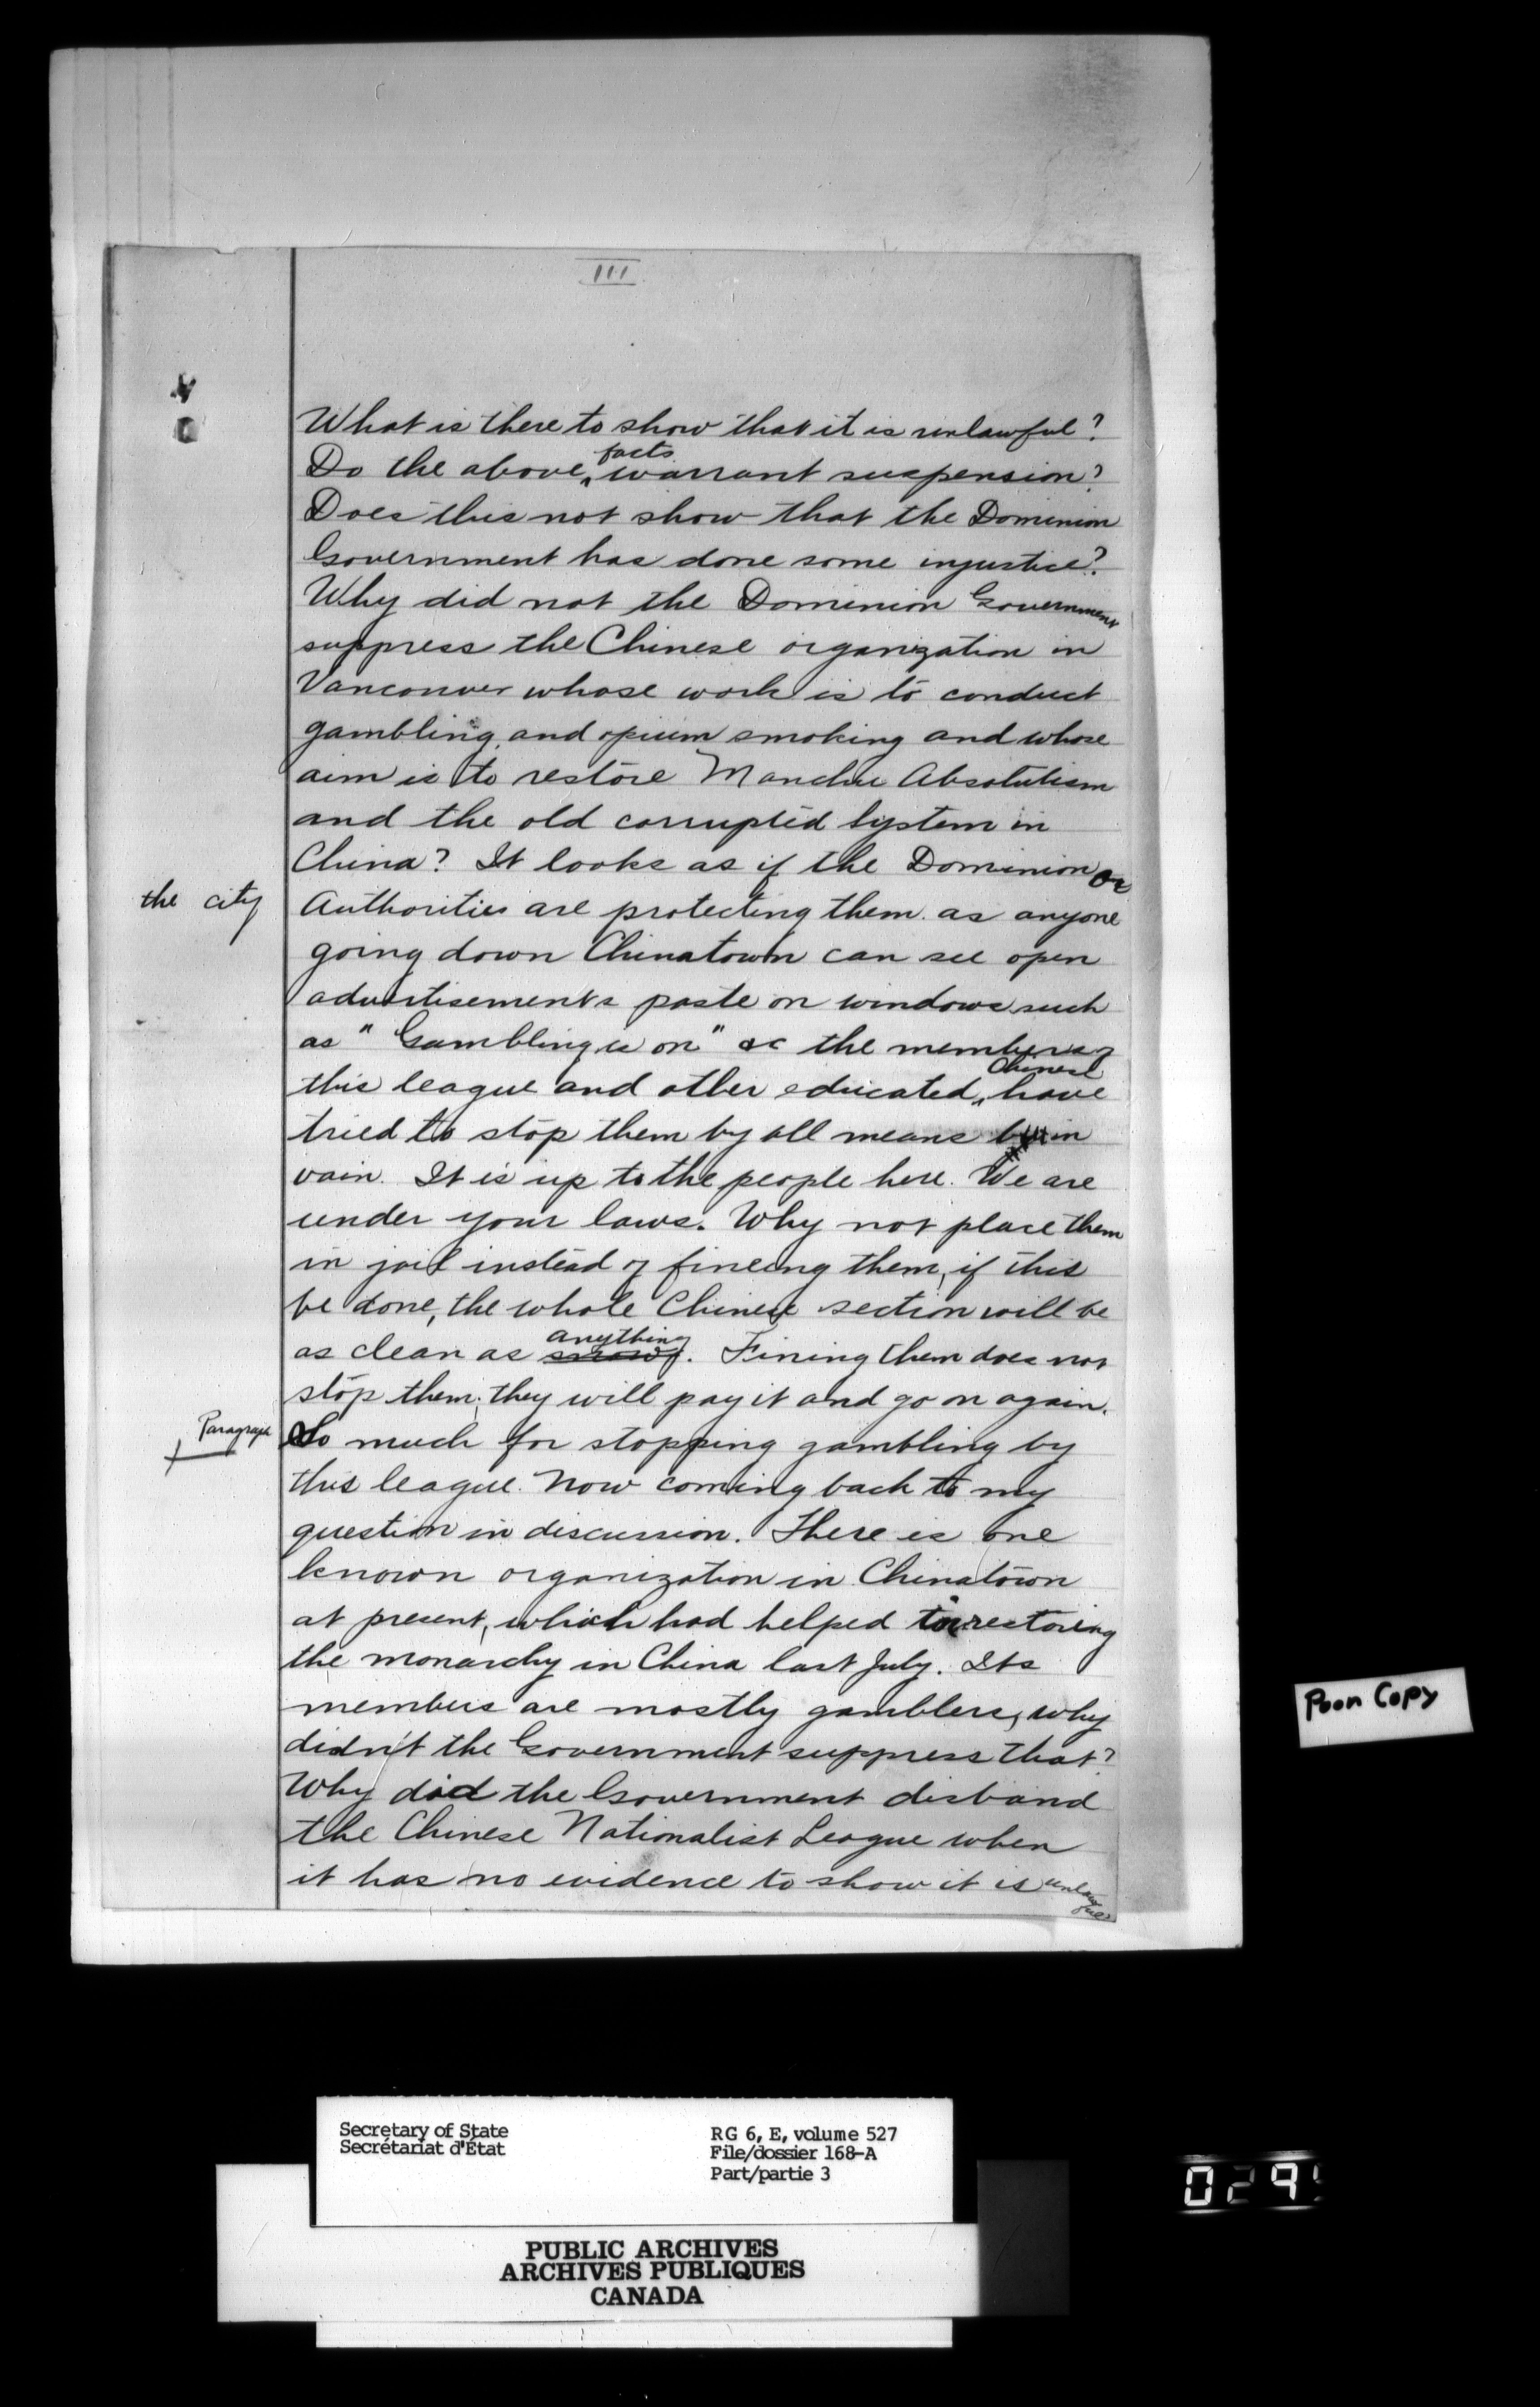 III
What is there to show that it is unlawful?
facts
Do the above, warrant suspension?
Does this not show that the Dominion
Government has done some injustice?
Why did not the Dominion Government
suppress the Chinese organization in
Vancouver whose work is to conduct
gambling, and opium smoking and whose
aim is to restore Manchu Absolutism
and the old corrupted System in
China? It looks as if the Dominion or
the city Authorities are protecting them as anyone
going down Chinatown can see open
advertisements paste on windows such
as "Gambling is on" as the members of
Chinese
this league and other educated, have
tried to stop them by all means but in
vain. It is up to the people here. We are
under your laws. Why not place them
in jail instead of fineing them, if this
be done, the whole Chinese section will be
anything
as clean as snow. Fining them does not
stop them; they will pay it and go on again.
Paragraph So much for stopping gambling by
this league. Now coming back to my
question in discussion. There is one
known organization in Chinatown
at present, which had helped in restoring
the monarchy in China last July. Its
members are mostly gamblers, why
didn't the Government suppress that?
Why did the Government disband
the Chinese Nationalist League when
it has no evidence to show it is unlawful?
Poor Copy
Secretary of State
Secrétariat d'État
RG 6, E, volume 527
File/dossier 168-A
Part/partie 3
PUBLIC ARCHIVES
ARCHIVES PUBLIQUES
CANADA
029